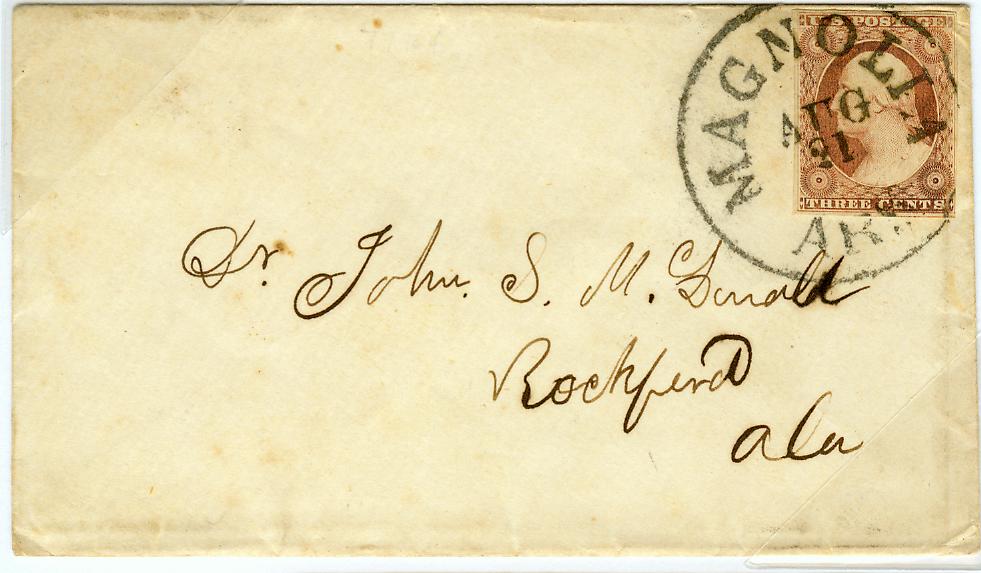 U.S. POSTAGE
MAGNOLIA
AUG
21
ARK
THREE CENTS
Dr. John. S. M. Donald
Rockford
Ala